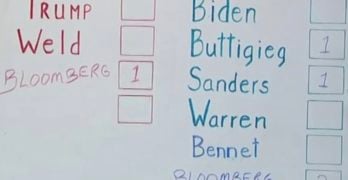 TRUMP
Weld
BLOOMBERG 1
Biden
Buttigieg 1
Sanders 1
Warren
Bennet
BLOOMBERG